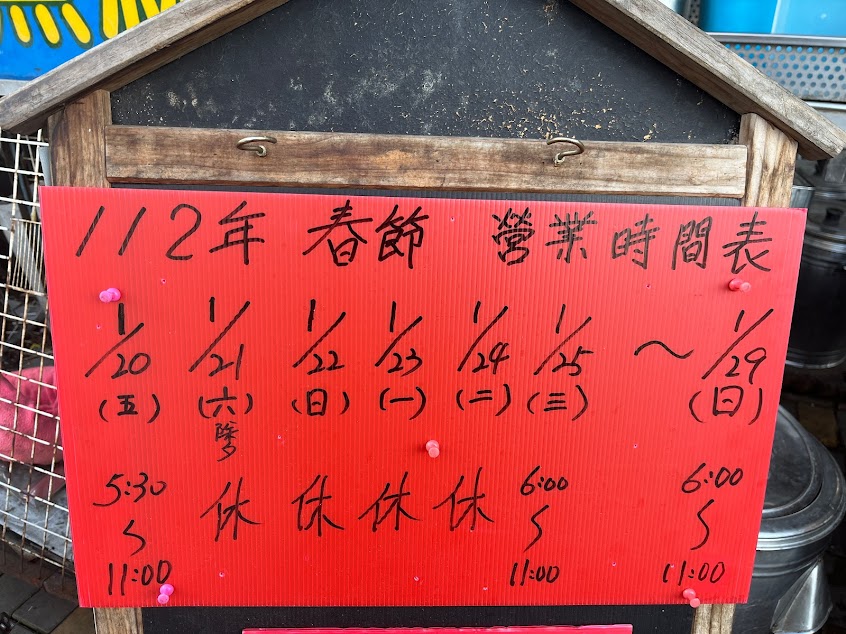 112年 春節 營業時間表
1/20 1/21 1/22 1/23 1/24 1/25 ～ 1/29
(五) (六) (日) (一) (二) (三) (日)
除夕
5:30 休 休 休 休 6:00 6:00
～ ～ ～
11:00 11:00 11:00